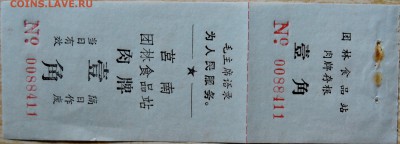 COINS.LAVE.RU
毛主席语录
为人民服务。
莒南
团林食品站
肉牌
壹角
当日有效
隔日作废
№ 0088411
团林食品站
肉牌存根
壹角
№ 0088411